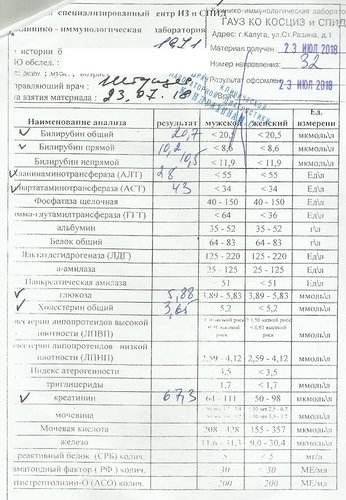 специализированный центр ИЗ и СПИД
клинико - иммунологическая лаборатория
ГАУЗ КО КОСЦИЗ и СПИД
Адрес: г.Калуга, ул.Ст.Разина, д.1
1971
Материал получен 23 ИЮЛ 2018
истории б
Номер направления: 32
ЛО обслед. :
Результат оформлен 23 ИЮЛ 2018
равляющий врач :
та взятия материала : 23.07.18
Наименование анализа результат мужской женский Ед. измерени
✓ Билирубин общий 20,7 < 20,5 < 20,5 мкмоль\л
✓ Билирубин прямой 10,2 < 8,6 < 8,6 мкмоль\л
Билирубин непрямой 10,5 < 11,9 < 11,9 мкмоль\л
✓ Аланинаминотрансфераза (АЛТ) 28 < 55 < 55 Ед\л
✓ Аспартатаминотрансфераза (АСТ) 43 < 34 < 34 Ед\л
Фосфатаза щелочная 40 - 150 40 - 150 Ед\л
амма-глутамилтрансфераза (ГГТ) < 64 < 36 Ед\л
альбумин 35 - 52 35 - 52 г\л
Белок общий 64 - 83 64 - 83 г\л
Лактатдегидрогеназа (ЛДГ) 125 - 220 125 - 220 Ед\л
а-амилаза 25 - 125 25 - 125 Ед\л
Панкреатическая амилаза < 51 < 51 Ед\л
✓ глюкоза 5,88 3,89 - 5,83 3,89 - 5,83 ммоль\л
✓ Холестерин общий 3,65 < 5,2 < 5,2 ммоль\л
лестерин липопротеидов высокой плотности (ЛПВП) ммоль\л
лестерин липопротеидов низкой плотности (ЛПНП) 2,59 - 4,12 2,59 - 4,12 ммоль\л
Индекс атерогенности < 3,5 < 3,5
триглицериды < 1,7 < 1,7 ммоль\л
✓ креатинин 67,3 64 - 111 50 - 98 мкмоль\л
мочевина ммоль\л
Мочевая кислота 208 - 428 155 - 357 мкмоль\л
железо 11,6 - 31,3 9,0 - 30,4 мкмоль\л
реактивный белок (СРБ) колич. < 5 < 5 мг/л
вматоидный фактор ( РФ ) колич. < 30 < 30 МЕ/мл
нтистрептолизин-О (АСО) колич. < 200 < 200 МЕ/мл